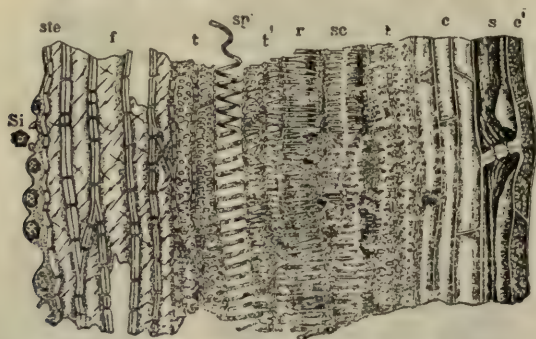 ste f t sp' t' r sc t c s e'
Si